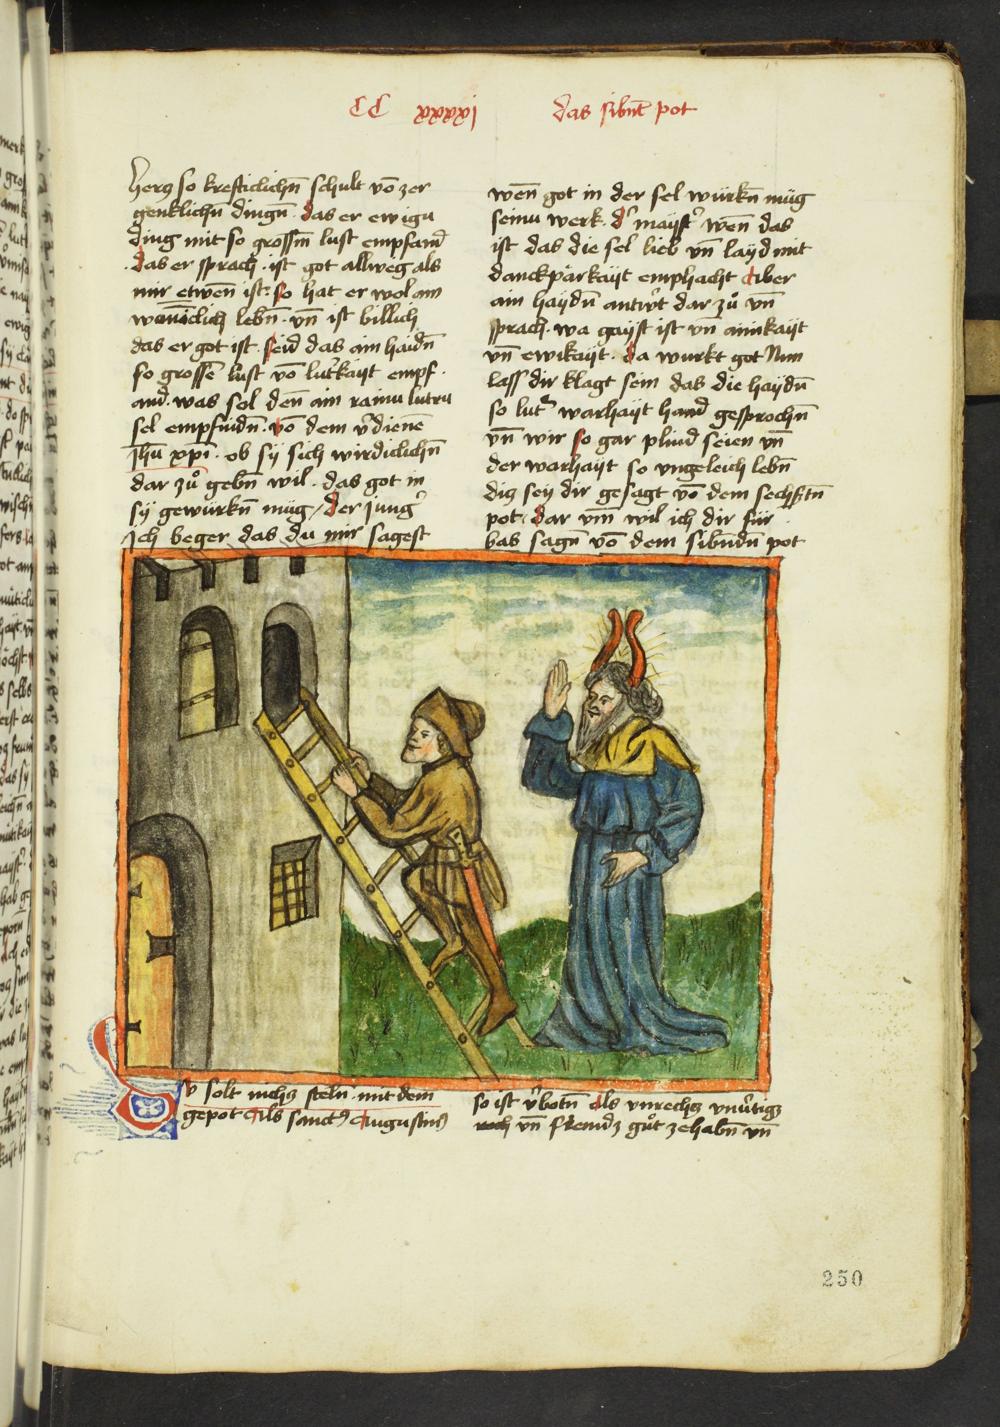 CC xxxxi das sibnt pot
herz so krefticlichn̄ schult vō zer
genklichn̄ dingn̄. das er ewigu
ding mit so grossm̄ lust empfand
.das er sprach. ist got allweg als
mir etwen̄ ist: so hat er wol ain
wūniclich lebn̄. vn̄ ist billich
das er got ist. seid das ain haidn̄
so grossē lust vō lutrkayt empf.
and. was sol den̄ ain rainu lutru
sel empfindn̄. vō dem v̄dienē
Jhū xp̄i. ob sy sich wirdiclichn̄
dar zů gebn̄ wil. das got in
sy gewürkn̄ müg / der Jung̉
Jch beger das du mir sagest
wen̄ got in der sel würkn̄ müg
seinu werk. d̉ mayst̉ wen̄ das
ist das die sel lieb vn̄ layd mit
danckpärkayt emphacht Aber
ain haydn̄ antw̉t dar zů vn̄
sprach. wa gayst ist vn̄ ainikayt
vn̄ ewikayt. da wurkt got Nun
lass dir klagt sein das die haydn̄
so lut̉ warhayt hand gesprochn̄
vn̄ wir so gar plind seien vn̄
der warhayt so vngeleich lebn̄
diz sey dir gesagt vō dem sechstn̄
pot. dar vm̄ wil ich dir für
bas sagn̄ vō dem sibndn̄ pot
Dv solt nichz steln. mit dem
gepot Als sanctꝰ Augustinꝰ
so ist v̉botn̄ als vnrechz
vn̄ fremdz gůt ze habn̄ vn̄
250